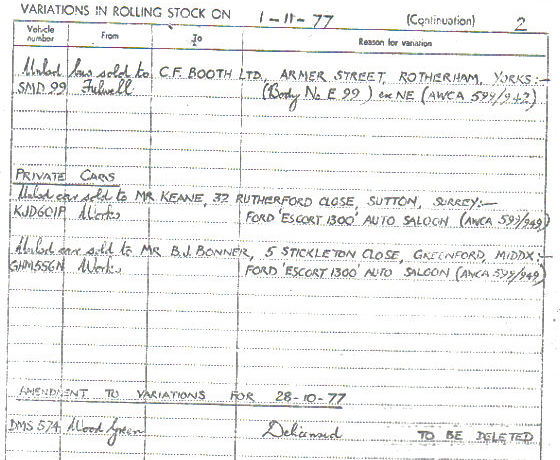 VARIATIONS IN ROLLING STOCK ON 1-11-77 (Continuation) 2
Vehicle number From To Reason for variation
Unlicd bus sold to C.F. BOOTH LTD., ARMER STREET, ROTHERHAM, YORKS:-
SMD 99 Fulwell (Body No E 99) ex NE (AWCA 599/942)
PRIVATE CARS
Unlicd car sold to MR KEANE, 32 RUTHERFORD CLOSE, SUTTON, SURREY:-
KJD601P Works FORD 'ESCORT 1300' AUTO SALOON (AWCA 599/949)
Unlicd car sold to MR B.J. BONNER, 5 STICKLETON CLOSE, GREENFORD, MIDDX:-
GHM556N Works FORD 'ESCORT 1300' AUTO SALOON (AWCA 599/949)
AMENDMENT TO VARIATIONS FOR 28-10-77
DMS 574 Wood Green Delicensed TO BE DELETED